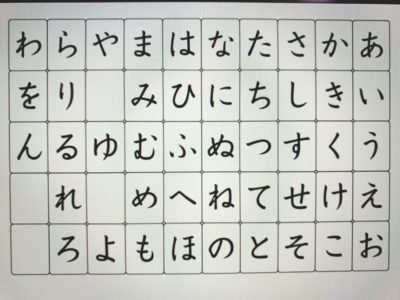 あいうえお
かきくけこ
さしすせそ
たちつてと
なにぬねの
はひふへほ
まみむめも
やゆよ
らりるれろ
わをん